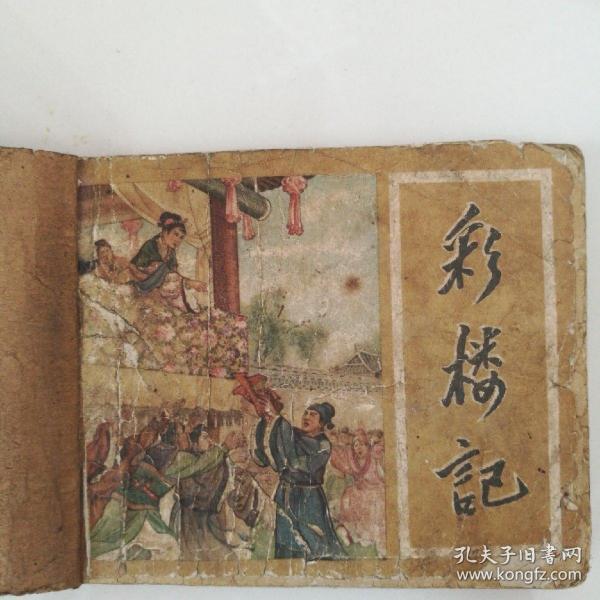 彩楼記
孔夫子旧書网
www.kongfz.com